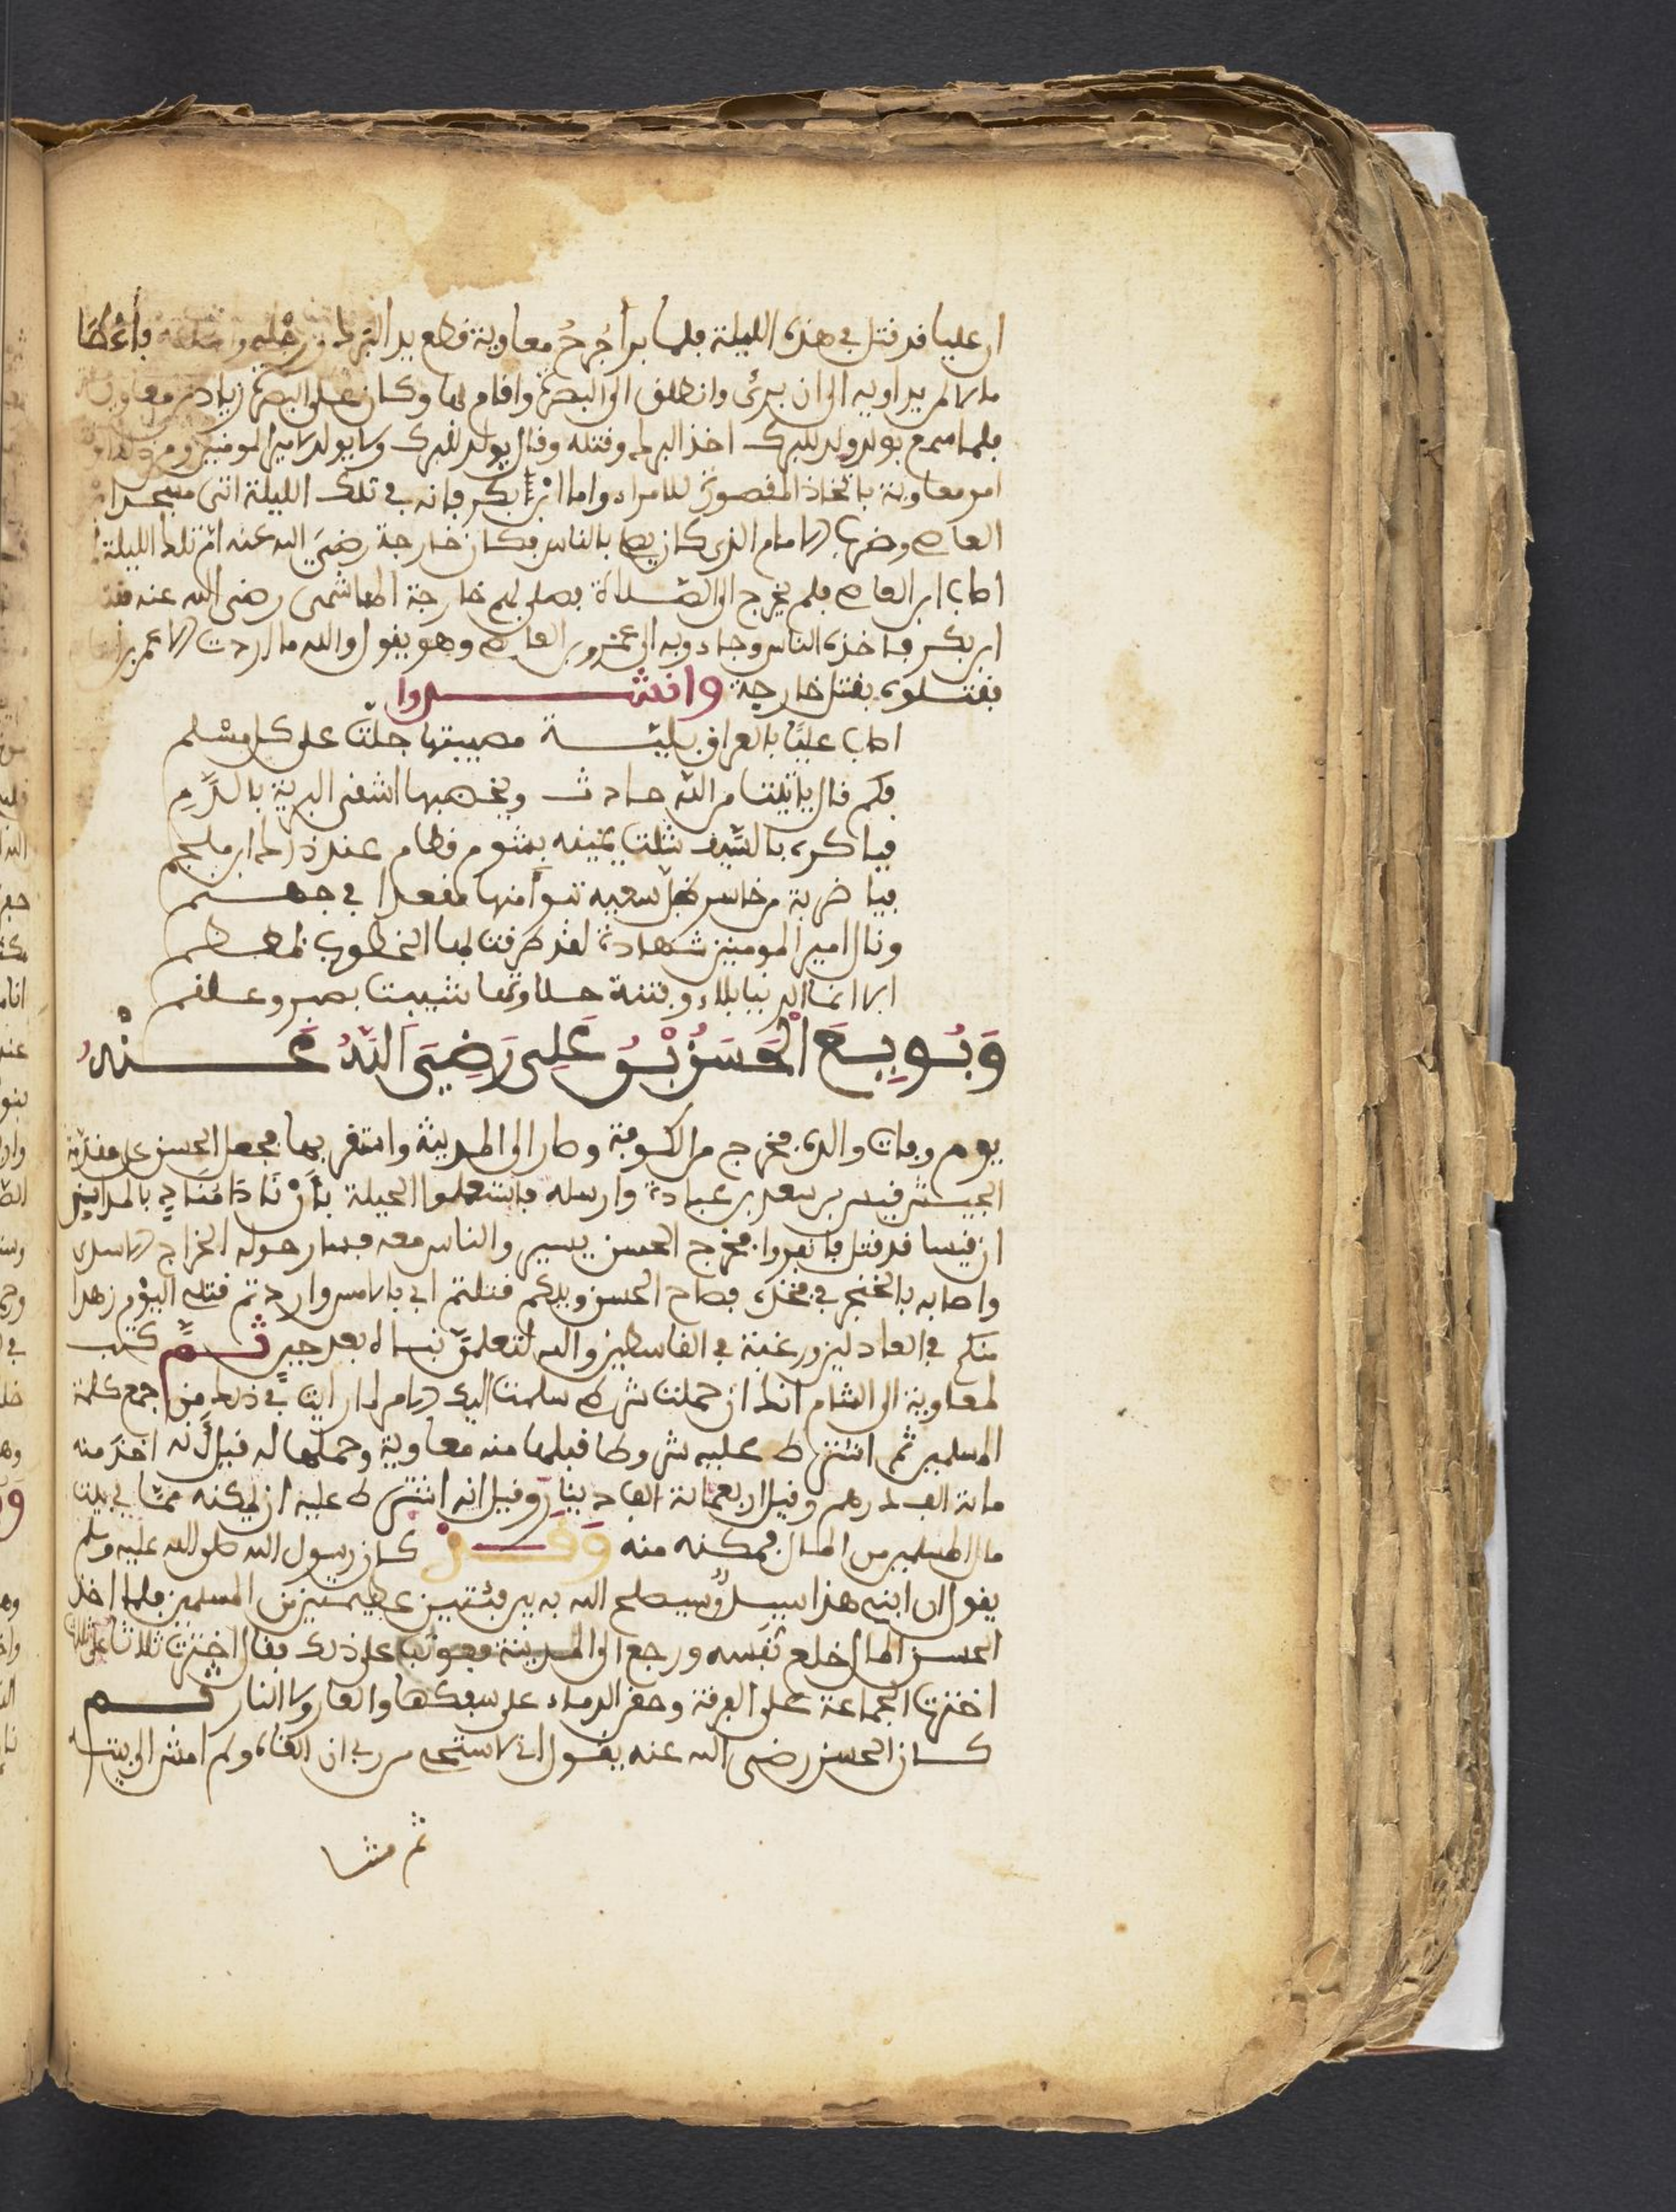 ان عليا قد قتل في هذه الليلة فلما برأ جُرحُ معاوية قطع يد البرك ورجليه فأعطا
مالا لمن يداويه الى ان برئ وانطلق الى البصرة واقام بها وكان على البصرة زياد من معاوية
فلما سمع بولد ولد للبرك اخذ البرك وقتله وقال يولد للبرك ولا يولد لامير المومنين ومن ذلك
امر معاوية باتخاذ المقصورة للامراء واما ابن بكر فانه في تلك الليلة اتى مسجد
العاص وضرب الامام الذي كان يصلي بالناس فكان خارجة رضي الله عنه تلك الليلة
اصاب ابن العاص فلم يخرج الى الصلاة فصلى بهم خارجة الهاشمي رضي الله عنه
ابن بكر فاخذه الناس وجاءوا به الى عمرو بن العاص وهو يقول والله ما اردت الا عمر
فقتلوه بقتل خارجة وانشدوا
اصاب عليًا بالعراق بليّة مصيبتها جلّت على كل مسْلم
فكم قال ياتينا من الله حادث ويخضبها اشقى البرية بالدَّمِ
فباكره بالسّيف شلت يمينه بشوم قطام عند ذاك ابن ملجم
فيا ضربة من خاسر ضلّ سعيه تبوأ منها مقعدا في جهنم
ونال امير المومنين شهادة لقد طرقت لها الخطوب بمعظم
الا انما الدنيا بلاء وفتنة حلاوتها شيبت بصبر وعلقم
وَبُويِعَ الْحَسَنُ بْنُ عَلِي رَضِيَ اللهُ عَنْهُ
يوم وفات والده فخرج من الكوفة وصار الى المدينة واستقر بها فجعل الحسن على مقدمة
الجيش قيس بن سعد بن عبادة وارسله فاستعملوا الحيلة بأنْ نَادَا مُنَادٍ بالمداين
ان قيسا قد قتل فانفروا فخرج الحسن يسير والناس معه فسار حوله الجراح الاسدي
واصابه بالخنجر في فخذه فصاح الحسن ويلكم قتلتم ابي بالامس واردتم قتلي اليوم زهدا
منكم في العادلين ورغبة في القاسطين والله لتعلمن نبأه بعد حين ثم كتب
لمعاوية الى الشام انك ان حملت شرطي سلمت اليك الامر لما رايت في ذلك من جمع كلمة
المسلمين ثم اشترط عليه شروطا قبلها منه معاوية وحملها له قيل أنه اخذ منه
مائة الف درهم وقيل اربعمائة الف دينار وقيل انه اشترط عليه ان يمكنه ممّا في بيت
مال المسلمين من المال فمكنه منه وقد كان رسول الله صلى الله عليه وسلم
يقول ان ابني هذا سيد وسيصلح الله به بين فئتين عظيمتين من المسلمين فلما اخذ
الحسن المال خلع نفسه ورجع الى المدينة فعوتب على ذلك فقال اخترت ثلاثا على ثلاث
اخترت الجماعة على الفرقة وحقن الدماء على سفكها والعار ولا النار ثم
كان الحسن رضي الله عنه يقول اني لاستحي من ربي ان القاه ولم امش الى بيته
ثم مشا